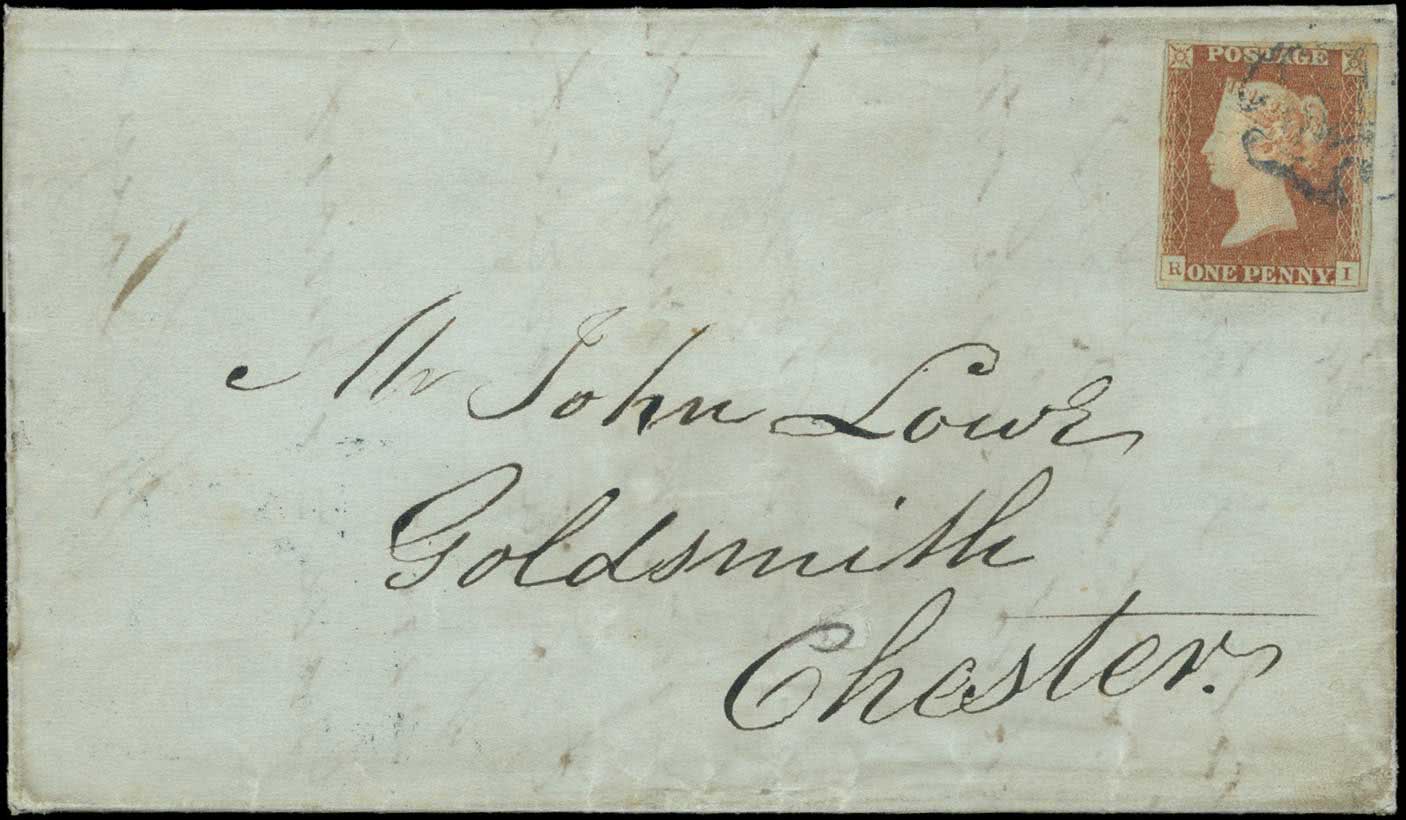 POSTAGE
R ONE PENNY. I
Mr John Lowe
Goldsmith
Chester.